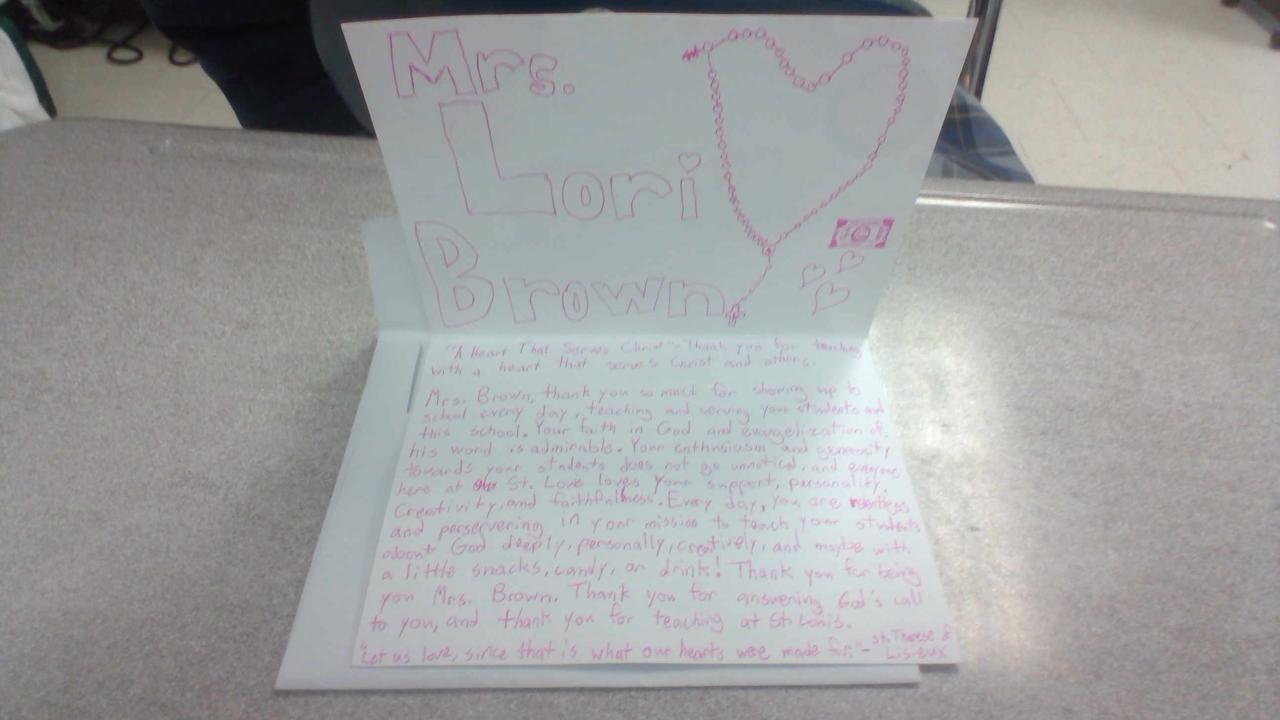 Mrs.
Lori
Brown
"A Heart That Serves Christ" - Thank you for teaching
with a heart that serves Christ and others.
Mrs. Brown, thank you so much for showing up to
school every day, teaching and serving your students and
this school. Your faith in God and evangelization of
his word is admirable. Your enthusiasm and generosity
towards your students does not go unnoticed, and everyone
here at St. Love loves your support, personality,
Creativity, and faithfullness. Every day, you are
and perservering in your mission to teach your students
about God deeply, personally, creatively, and maybe with
a little snacks, candy, or drink! Thank you for being
you Mrs. Brown. Thank you for answering God's call
to you, and thank you for teaching at St. Louis.
"Let us love, since that is what our hearts were made for." - St. Therese of
Lisieux